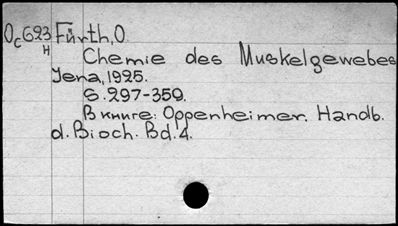 Oc623 Fürth, O.
H
Chemie des Muskelgewebes
Jena, 1925.
S. 297-359.
В книге: Oppenheimer. Handb.
d. Bioch. Bd. 4.